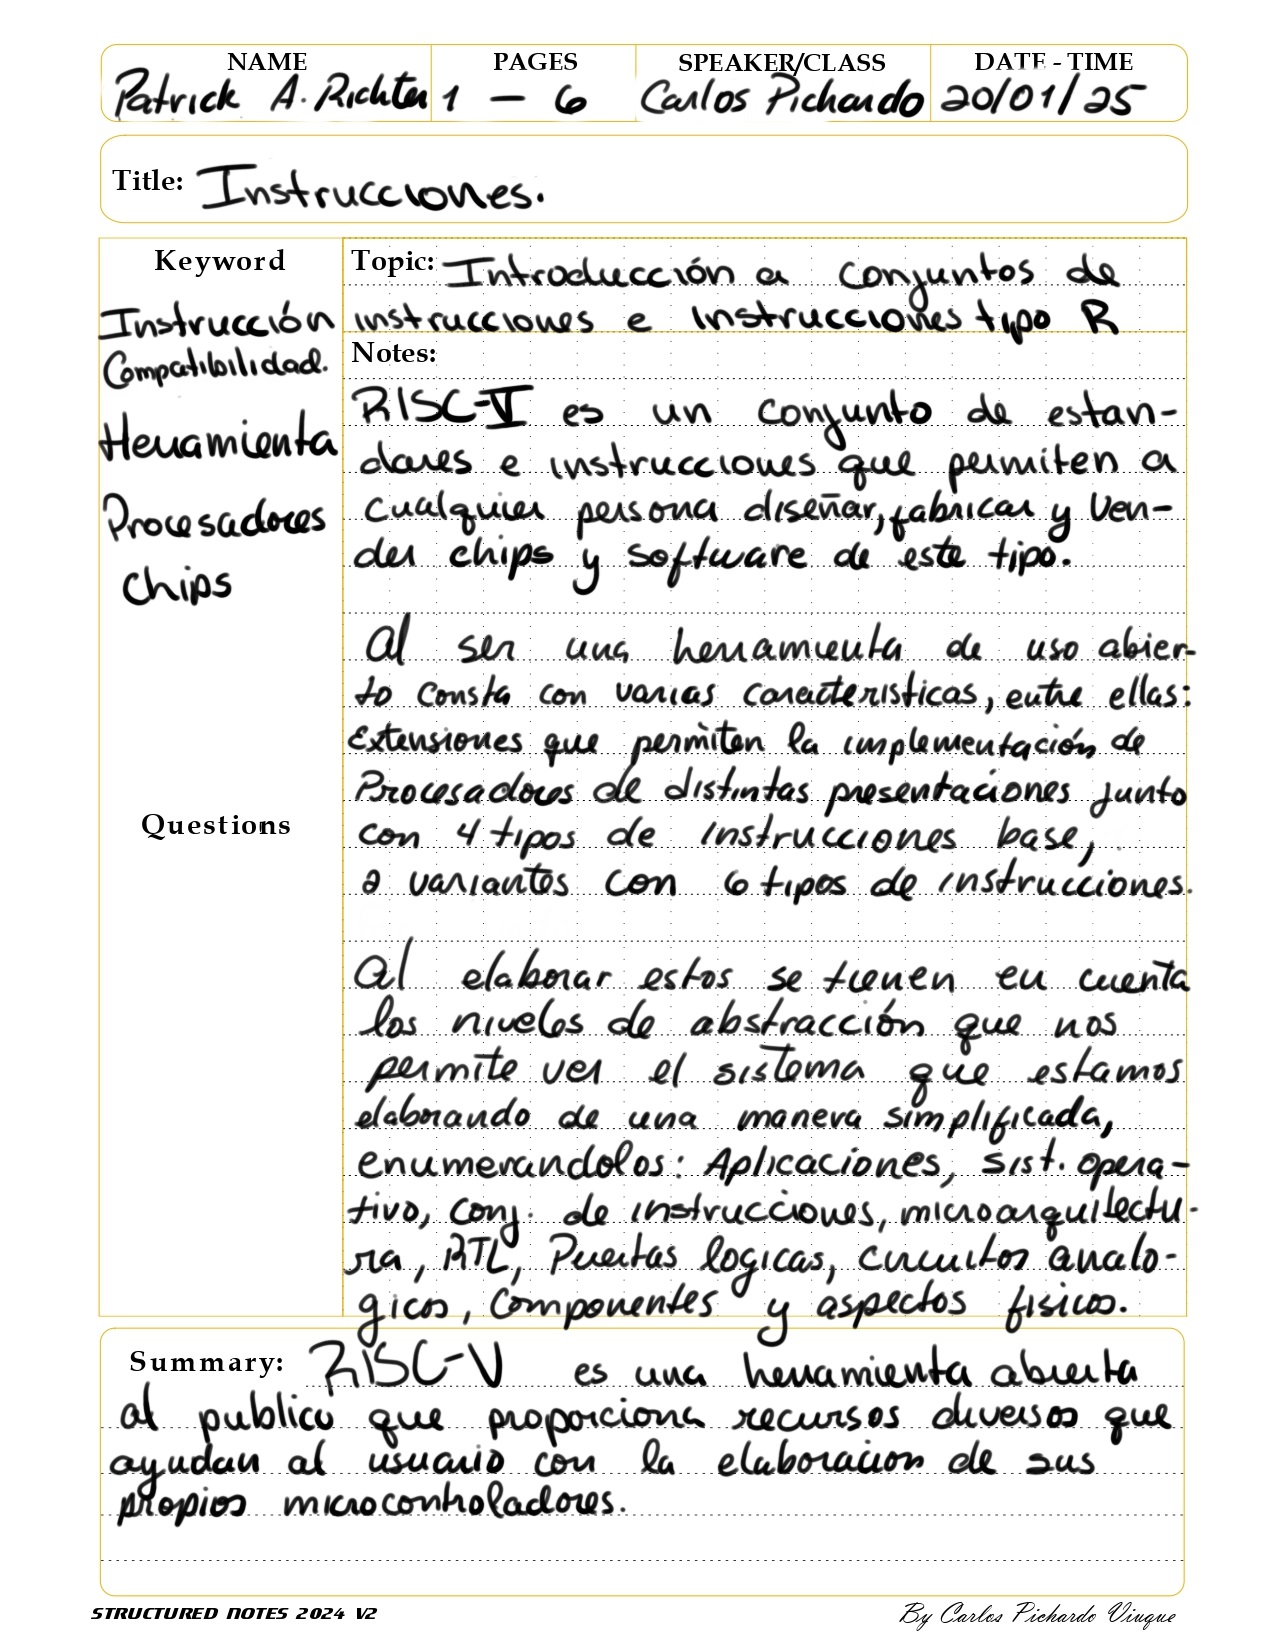 NAME PAGES SPEAKER/CLASS DATE - TIME
Patrick A. Richter 1 - 6 Carlos Pichardo 20/01/25
Title: Instrucciones.
Keyword
Instrucción
Compatibilidad.
Herramienta
Procesadores
Chips
Questions
Topic: Introducción a conjuntos de
instrucciones e instrucciones tipo R
Notes:
RISC-V es un conjunto de estan-
dares e instrucciones que permiten a
cualquier persona diseñar, fabricar y ven-
der chips y software de este tipo.
Al ser una herramienta de uso abier-
to consta con varias caracteristicas, entre ellas:
Extensiones que permiten la implementación de
Procesadores de distintas presentaciones junto
con 4 tipos de instrucciones base,
2 variantes con 6 tipos de instrucciones.
Al elaborar estos se tienen en cuenta
los niveles de abstracción que nos
permite ver el sistema que estamos
elaborando de una manera simplificada,
enumerandolos: Aplicaciones, sist. opera-
tivo, conj. de instrucciones, microarquitectu-
ra, RTL, Puertas logicas, circuitos analo-
gicos, Componentes y aspectos fisicos.
Summary: RISC-V es una herramienta abierta
al publico que proporciona recursos diversos que
ayudan al usuario con la elaboracion de sus
propios microcontroladores.
STRUCTURED NOTES 2024 V2 By Carlos Pichardo Viuque